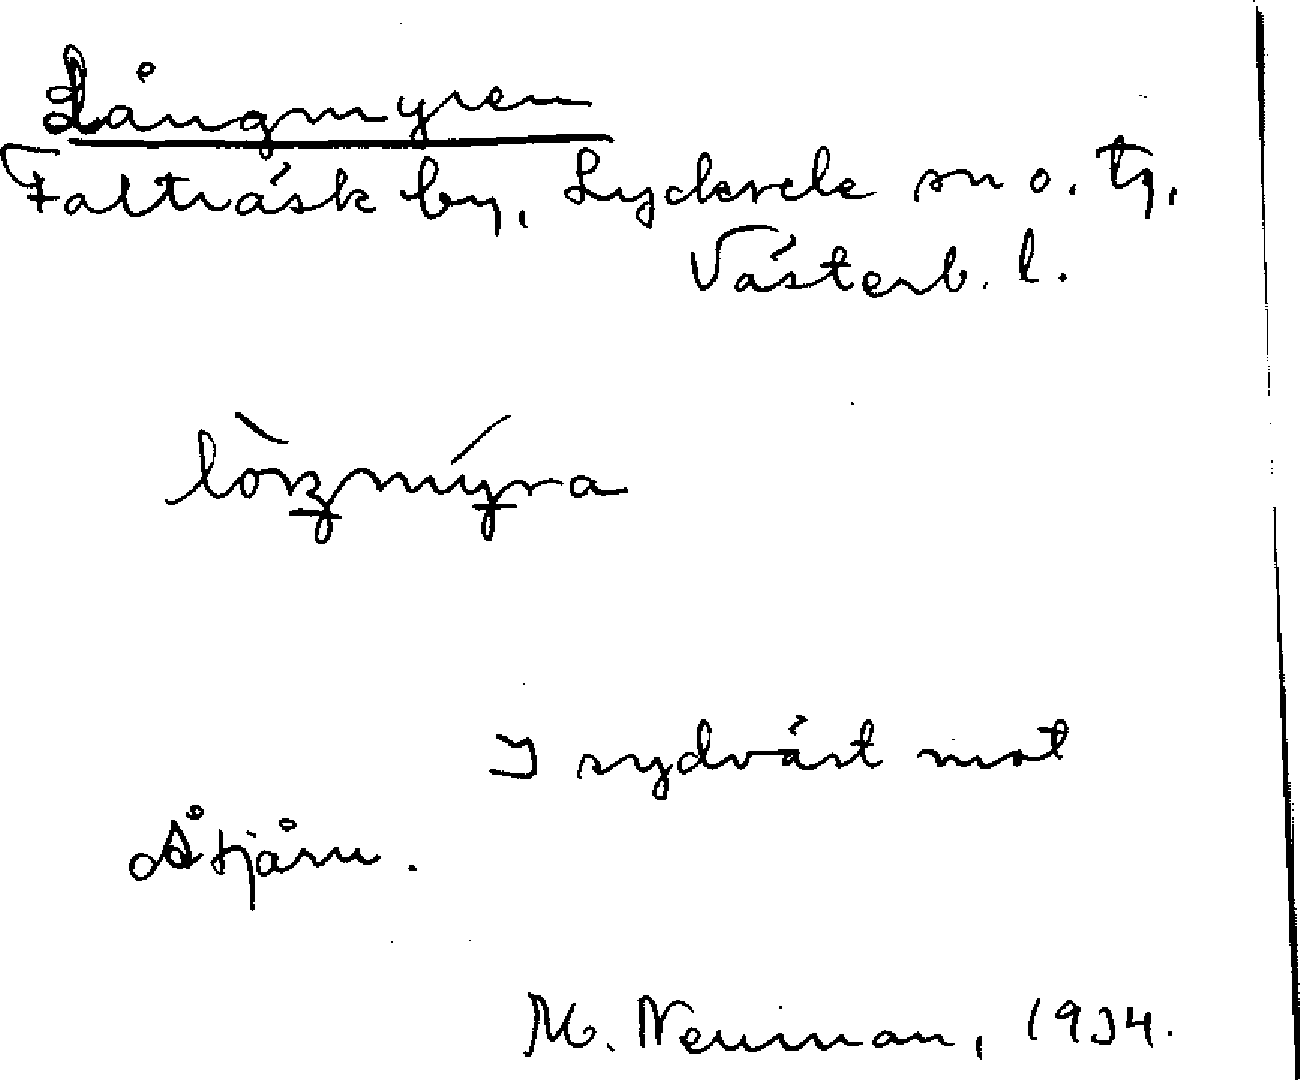 Långmyren
Falträsk by, Lycksele sn o. tg,
Västerb. l.
I sydväst mot
Åtjärn.
M. Neuman, 1934.